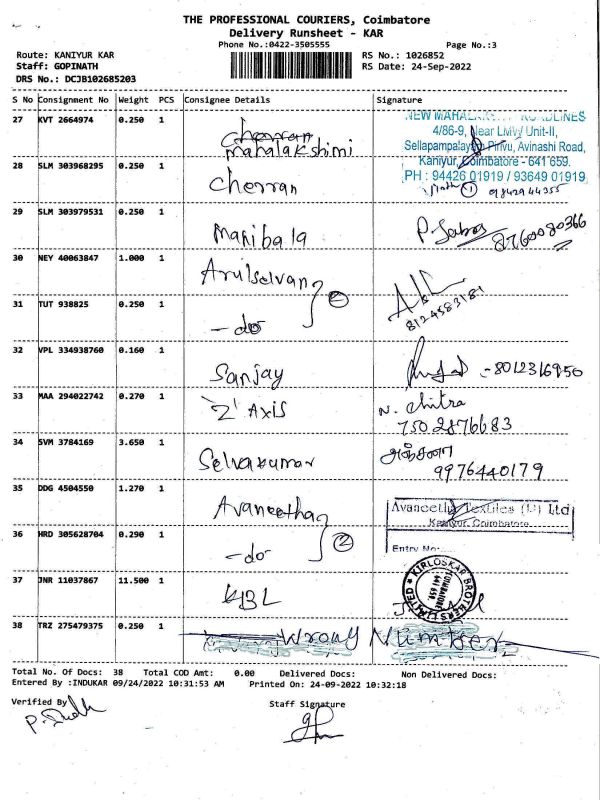 THE PROFESSIONAL COURIERS, Coimbatore
Delivery Runsheet - KAR
Phone No.:0422-3505555 Page No.:3
Route: KANIYUR KAR RS No.: 1026852
Staff: GOPINATH RS Date: 24-Sep-2022
DRS No.: DCJB102685203
S No Consignment No Weight PCS Consignee Details Signature
27 KVT 2664974 0.250 1 Cherran
mahalakshimi
NEW MAHALAKSHMI ROADLINES
4/86-9, Near LMW Unit-II,
Sellapampalayam Pirivu, Avinashi Road,
Kaniyur, Coimbatore - 641 659.
PH : 94426 01919 / 93649 01919
28 SLM 303968295 0.250 1 Cherran 9842944355
29 SLM 303979531 0.250 1 Manibala 8760080366
30 NEY 40063847 1.000 1 Arulselvan 2
8124583181
31 TUT 938825 0.250 1 -do-
32 VPL 334938760 0.160 1 Sanjay - 8012316950
33 MAA 294022742 0.270 1 'Z' Axis N. Chitra
7502876683
34 SVM 3784169 3.650 1 Selvakumar அஞ்சனா
9976440179
35 DDG 4504550 1.270 1 Avaneetha 2
Avaneetha Textiles (P) Ltd
Kaniyur, Coimbatore
36 HRD 305628704 0.290 1 -do-
Entry No:
37 JNR 11037867 11.500 1 KBL
KIRLOSKAR BROTHERS LIMITED
COIMBATORE
641 659.
38 TRZ 275479375 0.250 1 Wrong Number
Total No. Of Docs: 38 Total COD Amt: 0.00 Delivered Docs: Non Delivered Docs:
Entered By :INDUKAR 09/24/2022 10:31:53 AM Printed On: 24-09-2022 10:32:18
Verified By Staff Signature